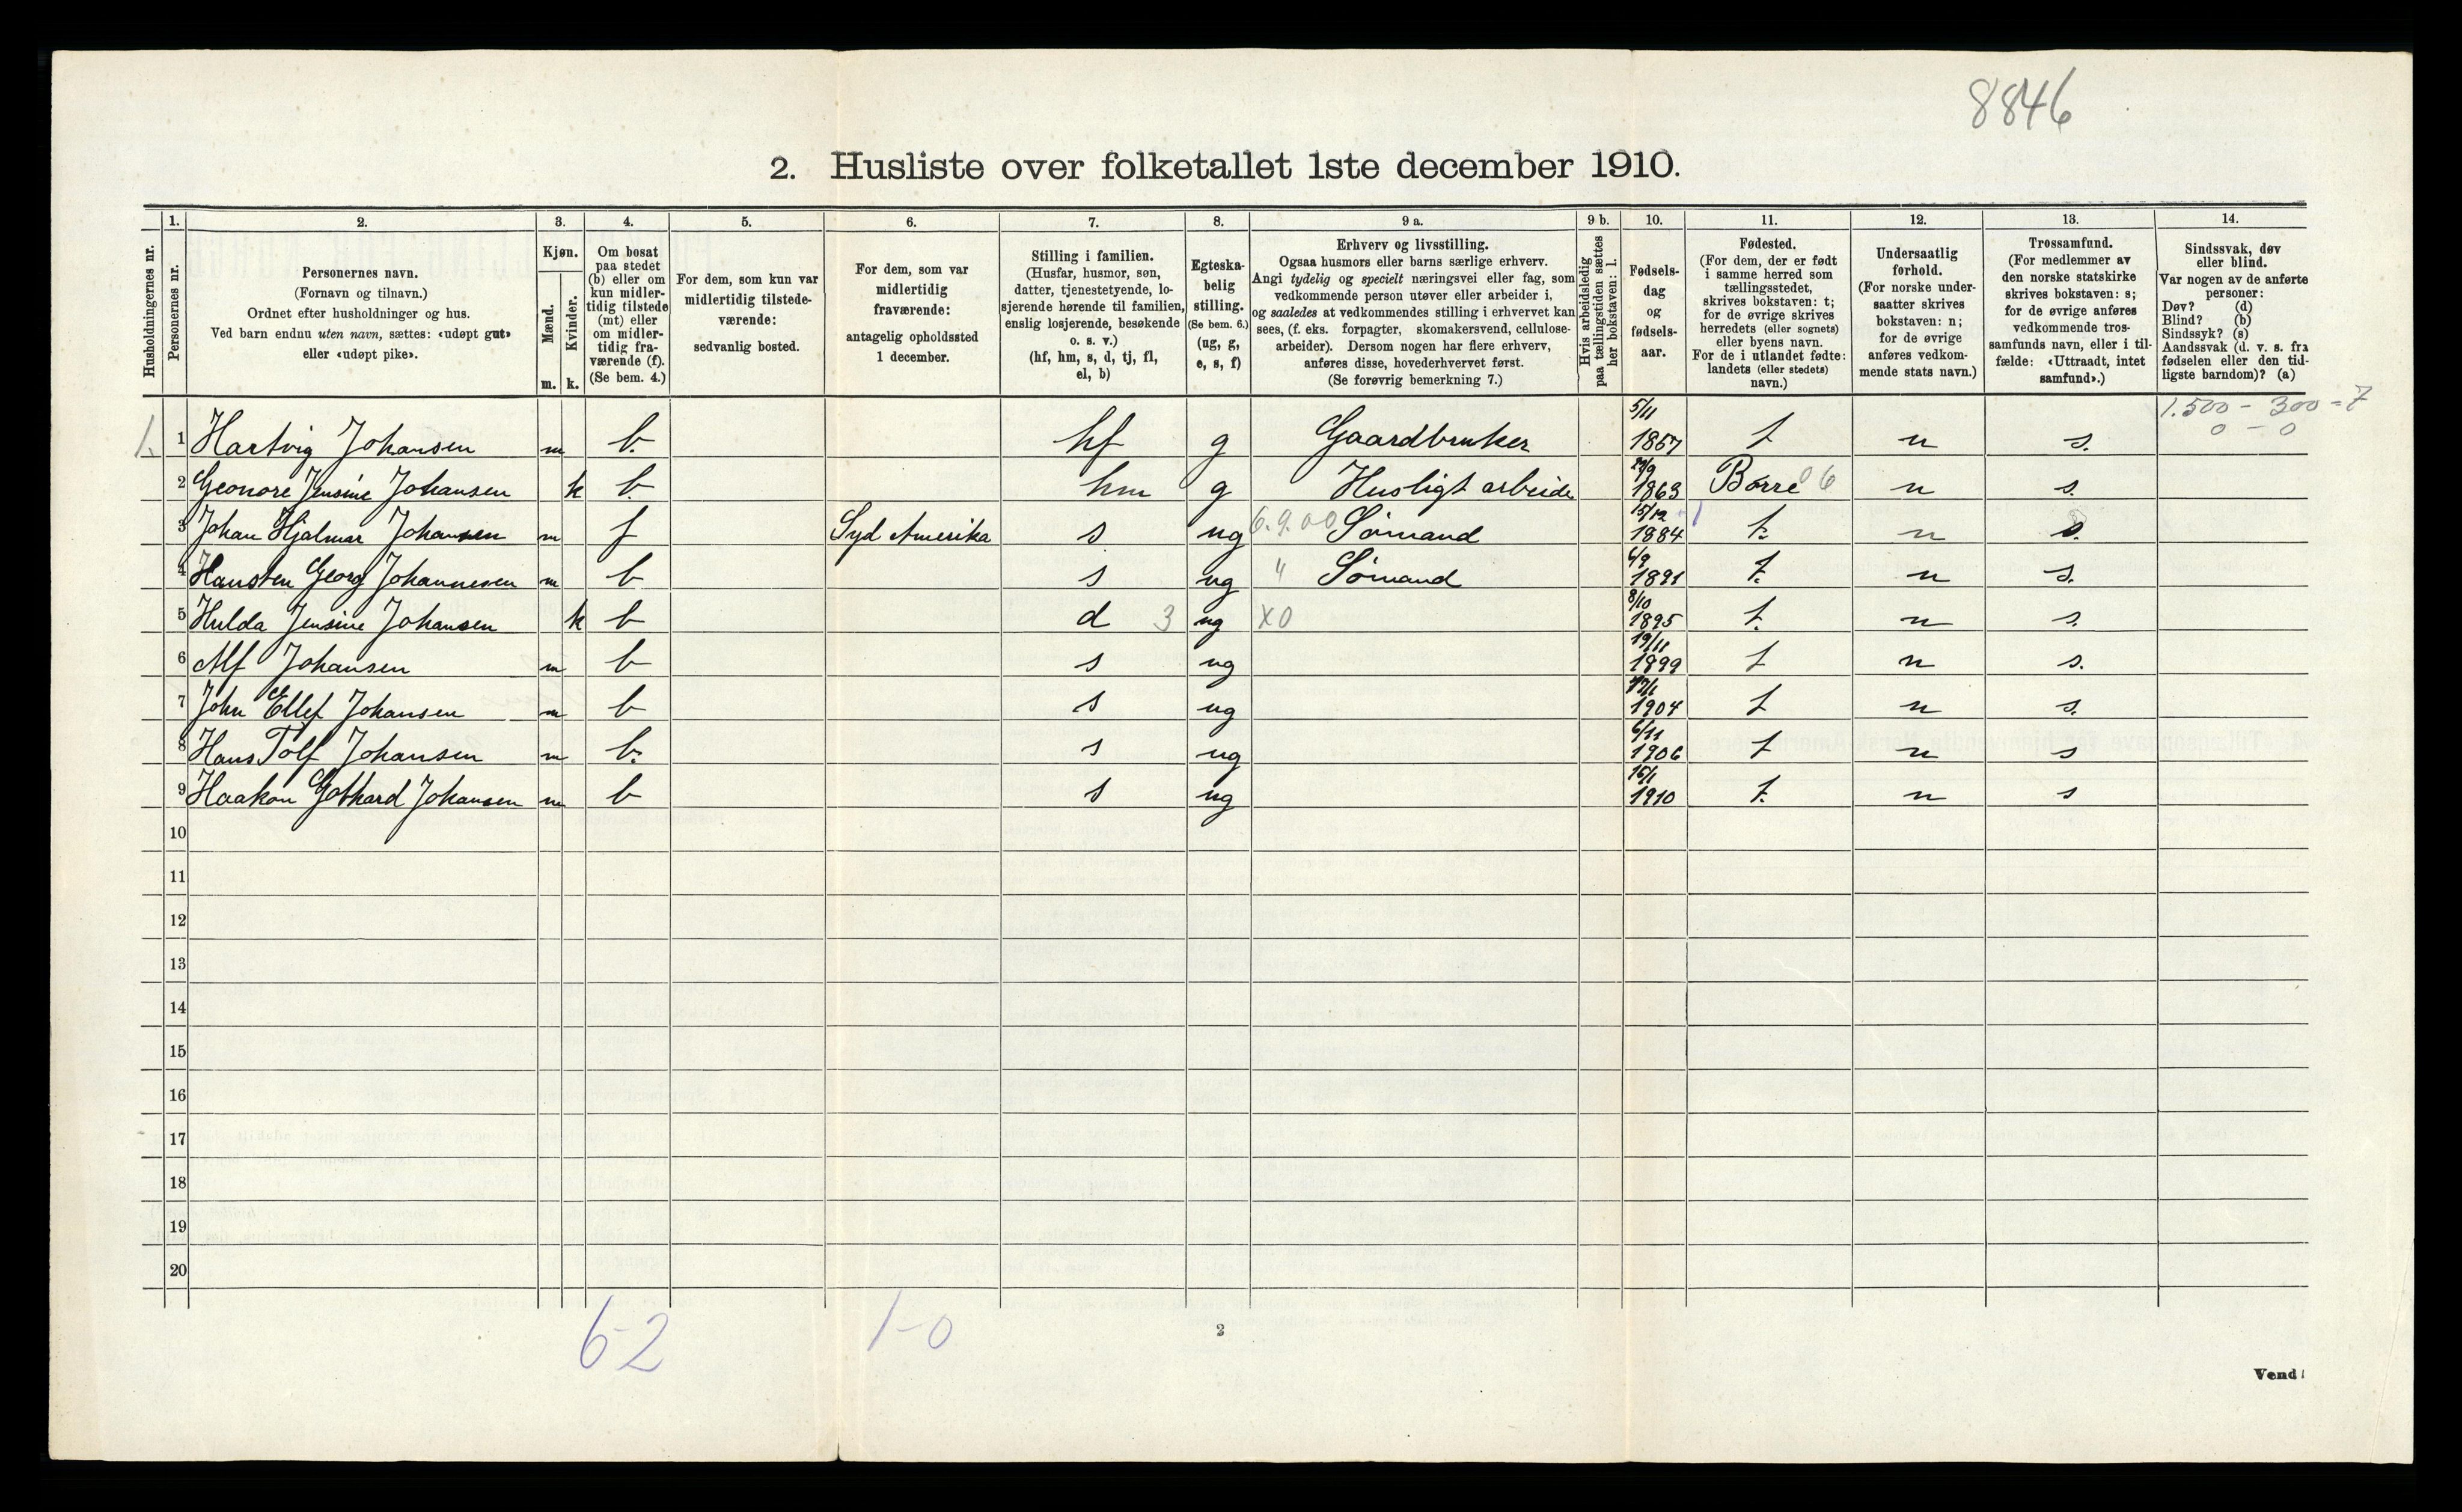 8846
2. Husliste over folketallet 1ste december 1910.
Husholdningernes nr.
1.
Personernes nr.
2.
Personernes navn.
(Fornavn og tilnavn.)
Ordnet efter husholdninger og hus.
Ved barn endnu uten navn, sættes: «udøpt gut»
eller «udøpt pike».
3.
Kjøn.
Mænd.
Kvinder.
m. k.
4.
Om bosat
paa stedet
(b) eller om
kun midler-
tidig tilstede
(mt) eller
om midler-
tidig fra-
værende (f).
(Se bem. 4.)
5.
For dem, som kun var
midlertidig tilstede-
værende:
sedvanlig bosted.
6.
For dem, som var
midlertidig
fraværende:
antagelig opholdssted
1 december.
7.
Stilling i familien.
(Husfar, husmor, søn,
datter, tjenestetyende, lo-
sjerende hørende til familien,
enslig losjerende, besøkende
o. s. v.)
(hf, hm, s, d, tj, fl,
el, b)
8.
Egteska-
belig
stilling.
(Se bem. 6.)
(ug, g,
e, s, f)
9 a.
Erhverv og livsstilling.
Ogsaa husmors eller barns særlige erhverv.
Angi tydelig og specielt næringsvei eller fag, som
vedkommende person utøver eller arbeider i,
og saaledes at vedkommendes stilling i erhvervet kan
sees, (f. eks. forpagter, skomakersvend, cellulose-
arbeider). Dersom nogen har flere erhverv,
anføres disse, hovederhvervet først.
(Se forøvrig bemerkning 7.)
9 b.
Hvis arbeidsledig
paa tællingstiden sættes
her bokstaven: l.
10.
Fødsels-
dag
og
fødsels-
aar.
11.
Fødested.
(For dem, der er født
i samme herred som
tællingsstedet,
skrives bokstaven: t;
for de øvrige skrives
herredets (eller sognets)
eller byens navn.
For de i utlandet fødte:
landets (eller stedets)
navn.)
12.
Undersaatlig
forhold.
(For norske under-
saatter skrives
bokstaven: n;
for de øvrige
anføres vedkom-
mende stats navn.)
13.
Trossamfund.
(For medlemmer av
den norske statskirke
skrives bokstaven: s;
for de øvrige anføres
vedkommende tros-
samfunds navn, eller i til-
fælde: «Uttraadt, intet
samfund».)
14.
Sindssvak, døv
eller blind.
Var nogen av de anførte
personer:
Døv? (d)
Blind? (b)
Sindssyk? (s)
Aandssvak (d. v. s. fra
fødselen eller den tid-
ligste barndom)? (a)
1.500 - 300 = 7
0 - 0
1. 1 Hartvig Johansen m b. hf g Gaardbruker 5/11 1867 t n s.
2 Geonore Jensine Johansen k b. hm g Husligt arbeide 1863 Borre 06 n s.
3 Johan Hjalmar Johansen m f Syd Amerika s ug 6.9.00 Sømand 15/12 1884 t. n s.
4 Hansten Georg Johannesen m b s ug " Sømand 6/9 1891 t. n s.
5 Hulda Jensine Johansen k b d 3 ug X0 8/10 1895 t. n s.
6 Alf Johansen m b s ug 19/11 1899 t n s.
7 John Ellef Johansen m b s ug 1904 t n s.
8 Hans Tolf Johansen m b. s ug 6/11 1906 t n s
9 Haakon Gothard Johansen m b s ug 15/1 1910 t. n s
10
11
12
13
14
15
16
17
18
19
20
6-2
1-0
2
Vend!